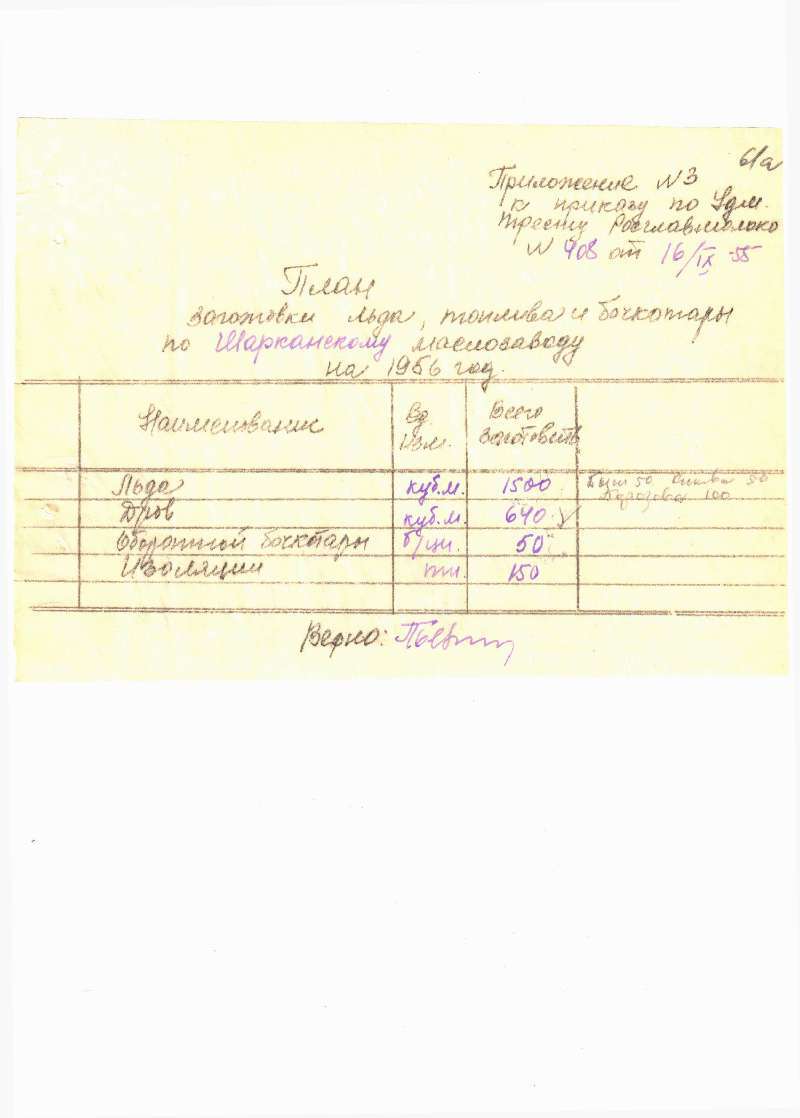 61а
Приложение N 3
к приказу по Удм.
тресту Росглавмолоко
N 408 от 16/IX-55
План
заготовки льда, топлива и бочкотары
по Шарканскому маслозаводу
на 1956 год.
Наименование Ед. Всего
изм. заготовить
Льда куб.м. 1500 50 50
Дров куб.м. 640 100
Оборотной бочкотары б/ци. 50
Изоляции тн. 150
Верно: